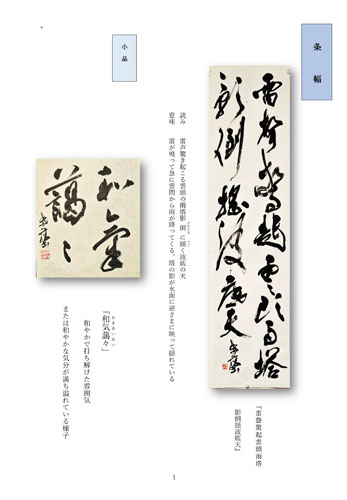 条幅
雷聲驚起雲頭雨塔
影倒揺波底天
『雷聲驚起雲頭雨塔
影倒揺波底天』
読み 雷声驚き起こる雲頭の雨塔影 倒 に揺く波底の天
意味 雷が鳴って急に雲間から雨が降ってくる。塔の影が水面に逆さまに映って揺れている
小品
和氣
藹々
『和気藹々』
わきあいあい
和やかで打ち解けた雰囲気
または和やかな気分が満ち溢れている様子
1